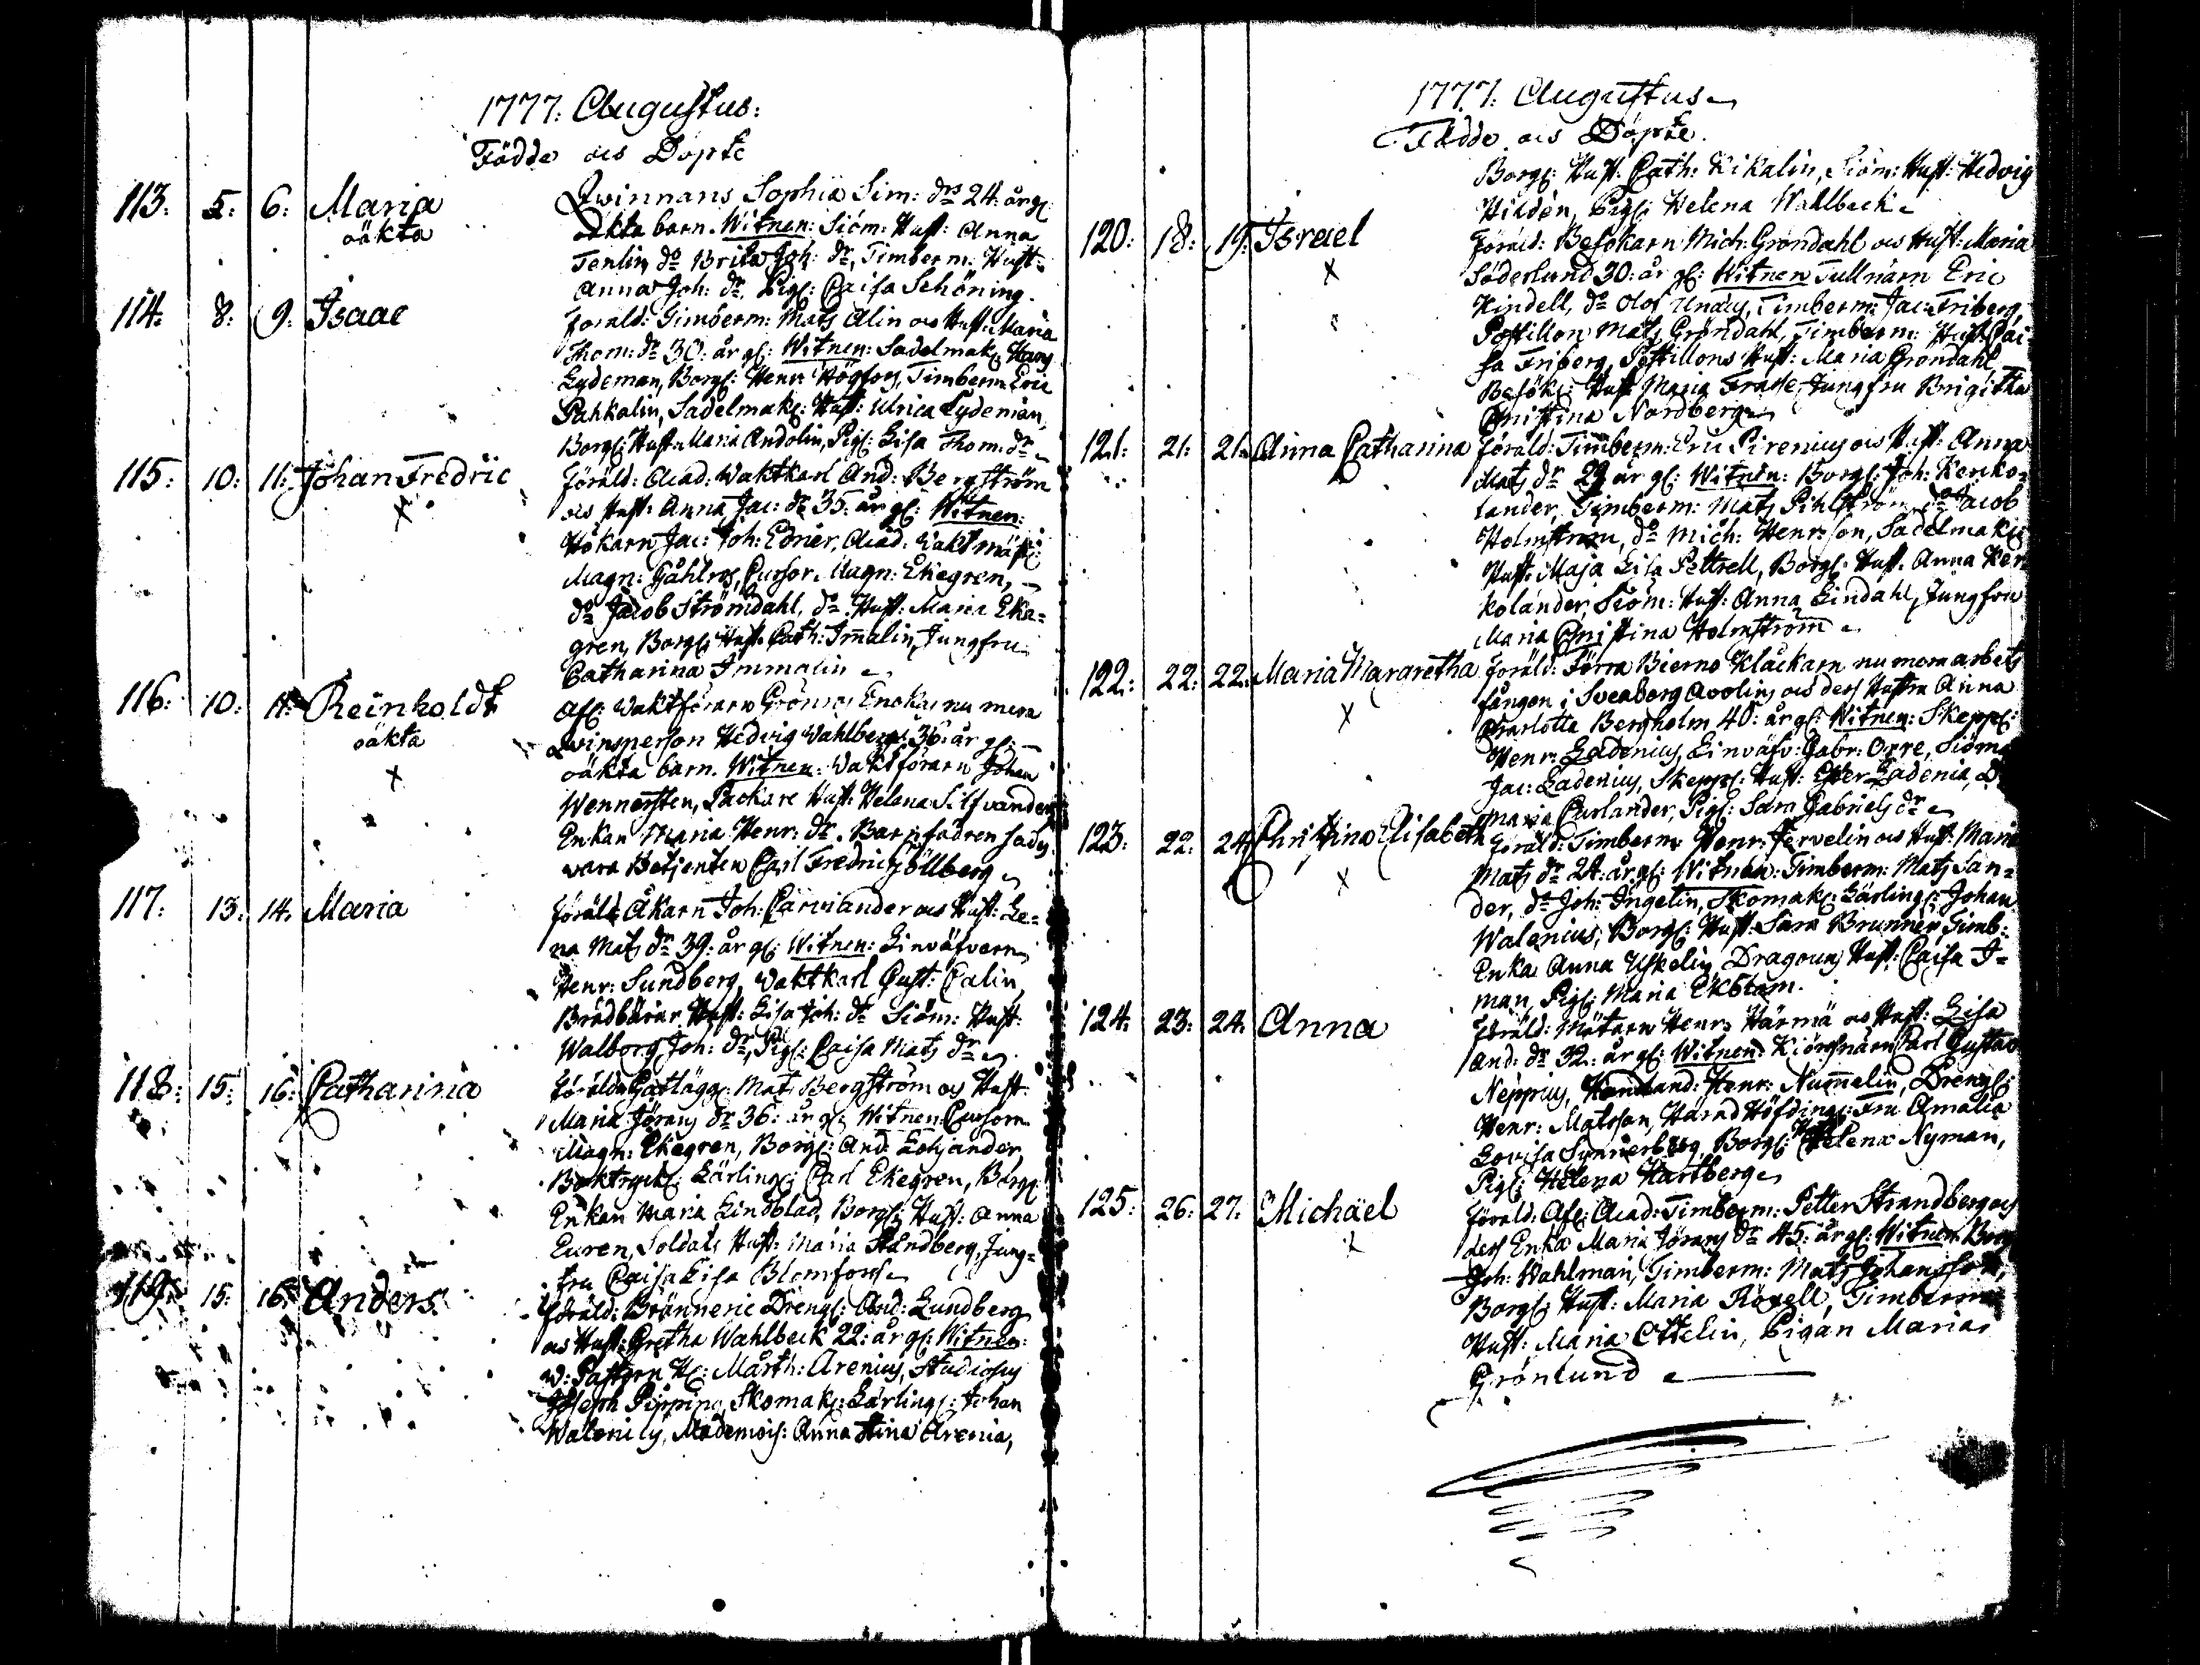 1777: Augustus:
Födde och Döpte
113: 5: 6: Maria Qwinnans Sophia Sim: drs 24: år gl:
oäkta oäkta barn. Witnen: Siöm: Hust: Anna
Tenlin, do Brita Joh: dr, Timberm: Hust:
Anna Joh: dr, Pig: Caisa Schöning.
114: 8: 9: Isaac Föräld: Timberm: Mats Alin och Hust: Maria
Thom: dr 30: år gl: Witnen: Sadelmak: Hans
Lydeman, Borg: Henr: Högfors, Timberm: Eric
Pahkalin, Sadelmak: Hust: Ulrica Lydeman,
Borg: Hust: Maria Andolin, Pig: Lisa Thom: dr
115: 10: 11: Johan Fredric Föräld: Acad: Waktkarl And: Bergström
x och Hust: Anna Jac: dr 35: år gl: Witnen:
Hökarn Jac: Joh: Edner, Acad: Waktmäst:
Magn: Gåhlros, Cursor Magn: Ekegren,
do Jacob Strömdahl, do Hust: Maria Eke=
gren, Borg: Hust: Cath: Im̅alin, Jungfru
Catharina Immalin
116: 10: 11: Reinholdt Afl: Waktförarn Grönros Enka nu mera
oäkta Qwinsperson Hedvig Wahlberg 36: år gl:
x oäkta barn. Witnen: Waktförarn Johan
Wennersten, Packare Hust: Helena Silfvander,
Enkan Maria Henr: dr. Barnfadren sades
vara Betjenten Carl Fredric Sjöllberg
117: 13: 14: Maria Föräld: Åkarn Joh: Carviander och Hust: Le=
na Mats dr 39: år gl: Witnen: Linväfvarn
Henr: Sundberg, Waktkarl Gust: Calin,
Brädbärar Hust: Lisa Joh: dr Siöm: Hust:
Walborg Joh: dr, Pig: Caisa Mats dr
118: 15: 16: Catharina Föräld: Gatlägg: Mats Bergström och Hust:
Maria Jörans dr 36: år gl: Witnen: Cursorn
Magn: Ekegren, Borg: And: Lohjander,
Boktryck: Lärling: Carl Ekegren, Borg:
Enkan Maria Lindblad, Borg: Hust: Anna
Euren, Soldats Hust: Maria Strandberg, Jung=
fru Caisa Lisa Blomfors
119: 15: 16: Anders Föräld: Bränneric Dreng: And: Lundberg
och Hust: Gretha Wahlbeck 22: år gl: Witnen:
v: Pastorn H: Mårth: Arenius, Studiosus
Joseph Pipping, Skomak: Lärling: Johan
Walenius, Mademois: Anna Stina Arenia,
1777: Augustus
Födde och Döpte.
Borg: Hust: Cath: Kikalin, Siöm: Hust: Hedvig
Hildén, Pig: Helena Wahlbeck
120: 18: 19: Israel Föräld: Besökarn Mich: Gröndahl och Hust: Maria
x Söderlund 30: år gl: Witnen Tullnärn Eric
Kindell, do Olof Unæus, Timberm: Jac: Friberg,
Postillon Mats Gröndahl, Timberm: Hust: Cai=
sa Friberg, Postillons Hust: Maria Gröndahl,
Besök: Hust: Maria Frasse, Jungfru Brigitta
Christina Nordberg
121: 21: 21: Anna Catharina Föräld: Timberm: Eric Pirenius och Hust: Anna
Mats dr 29 år gl: Witnen: Borg: Joh: Kerko=
lander, Timberm: Mats Pihlström, do Jacob
Holmström, do Mich: Henr:son, Sadelmak:
Hust: Maja Lisa Pettrell, Borg: Hust: Anna Ker=
kolander, Siöm: Hust: Anna Lindahl, Jungfru
Maria Christina Holmström
122: 22: 22: Maria Margretha Föräld: Förra Bierno Klåckarn nu mera arbets
x fången i Sveaborg Avolin, och dess Hustru Anna
Charlotta Bergholm 40: år gl: Witnen: Skepp:
Henr: Ladenius, Linväfv: Gabr: Orre, Siöm:
Jac: Ladenius, Skepp: Hust: Ester Ladenia,
Maria Curlander, Pig: Sara Gabriels dr
123: 22: 24: Christina Elisabeth Föräld: Timberm: Henr: Tervelin och Hust: Maria
x Mats dr 24: år gl: Witnen: Timberm: Mats San=
der, do Joh: Ingelin, Skomak: Lärling: Johan
Walenius, Borg: Hust: Sara Brunnér, Timb:
Enka Anna Uskelin, Dragouns Hust: Caisa I=
man, Pig: Maria Ekstam.
124: 23: 24: Anna Föräld: Mätarn Henr: Härmä och Hust: Lisa
And: dr 32: år gl: Witnen: Kiörsnärn Carl Gustav
Neppius, Henr: Num̅elin, Dreng:
Henr: Matsson, Härad Höfding: Fru Amalia
Lovisa Synnerberg, Borg: Hust: Helena Nyman,
Pig: Helena Hartberg
125: 26: 27: Michäel Föräld: Afl: Acad: Timberm: Petter Strandberg och
x dess Enka Maria Jörans dr 45: år gl: Witnen: Borg
Joh: Wahlman, Timberm: Mats Johansson,
Borg: Hust: Maria Röxell, Timberm:
Hust: Maria Ottelin, Pigan Maria
Grönlund